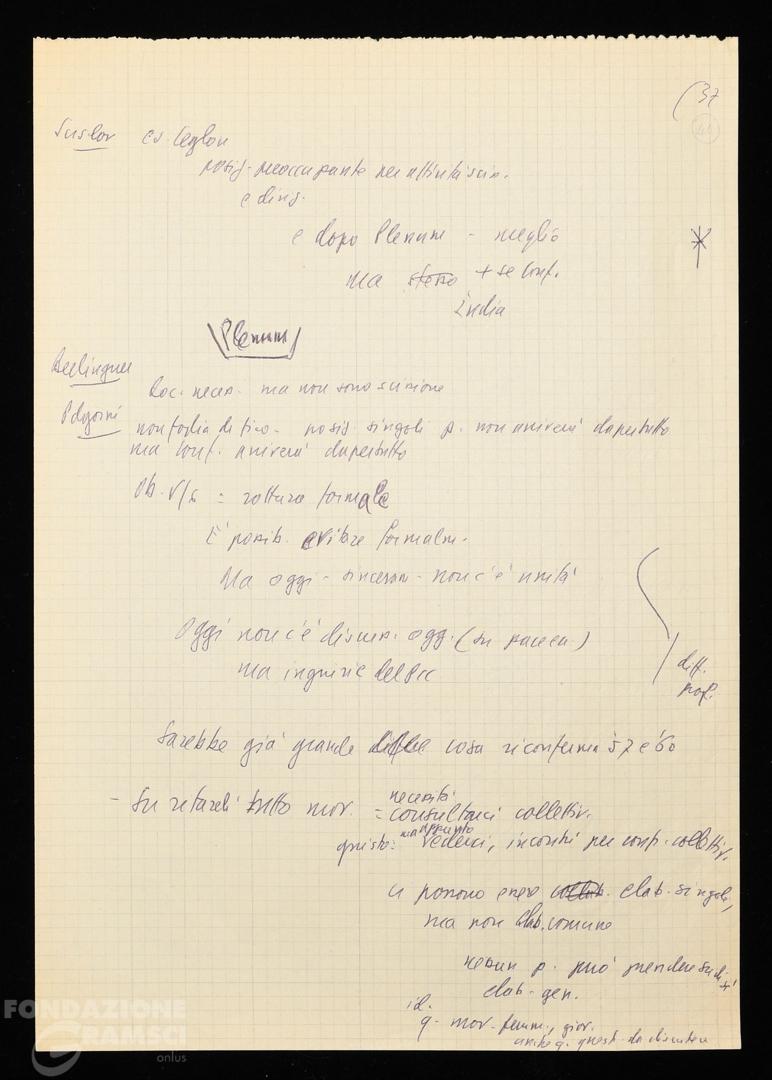 (37
44
Suslov es. Ceylon
posiz. preoccupante per attività scis.
e diris.
e dopo Plenum - meglio
ma stesso + se conf.
India
Plenum
Berlinguer
Doc. neces. ma non sono scissione
Pdgorni
non foglia di fico - posiz. singoli p. non arriverà dapertutto
ma conf. arriverà dapertutto
Ob. = rottura formale
È possib. evitare formalm.
Ma oggi - sinceram - non c'è unità
Oggi non c'è discuss. ogg. (su )
ma ingiurie del PC
diff.
prof.
Sarebbe già grande cosa riconferma 57 e 60
- Su retardi tutto mov. = necessità
consultarci collettiv.
questo = ma appunto vederci, incontri per conf. collettiv.
ci possono essere elab. singoli,
ma non elab. comune
nessun p. può prendere su di sé
elab. gen.
id.
q. mov. femm., giov.
anche q. quest. da discutere
FONDAZIONE
GRAMSCI
onlus